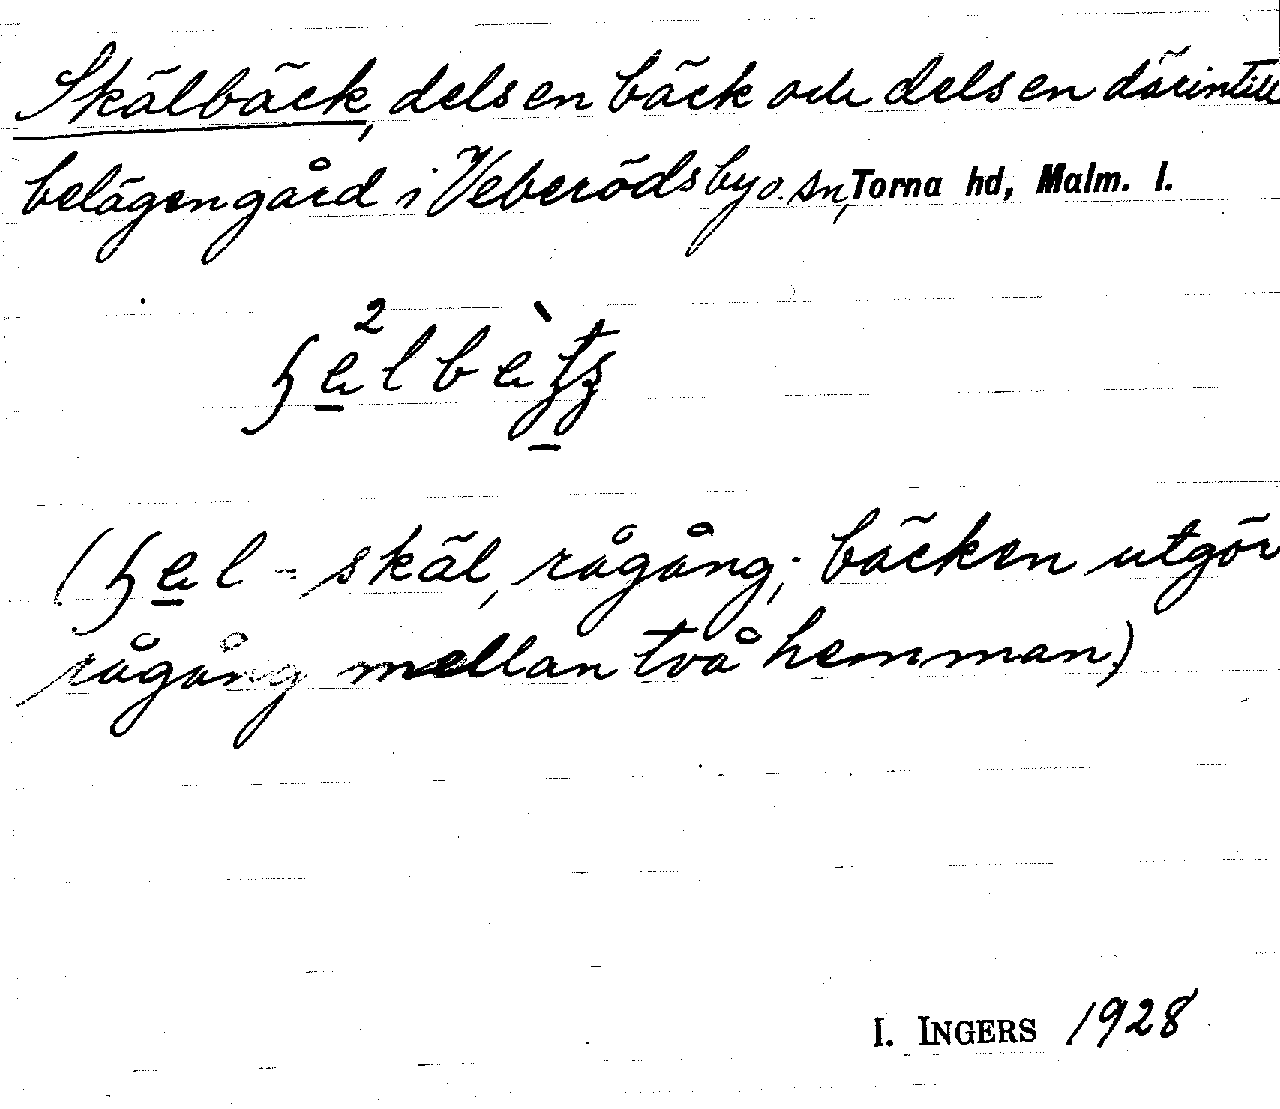 Skälbäck, dels en bäck och dels en därintill
belägen gård i Veberöds by o. sn, Torna hd, Malm. l.
(ɧæl - skäl, rågång; bäcken utgör
rågång mellan två hemman)
I. INGERS 1928